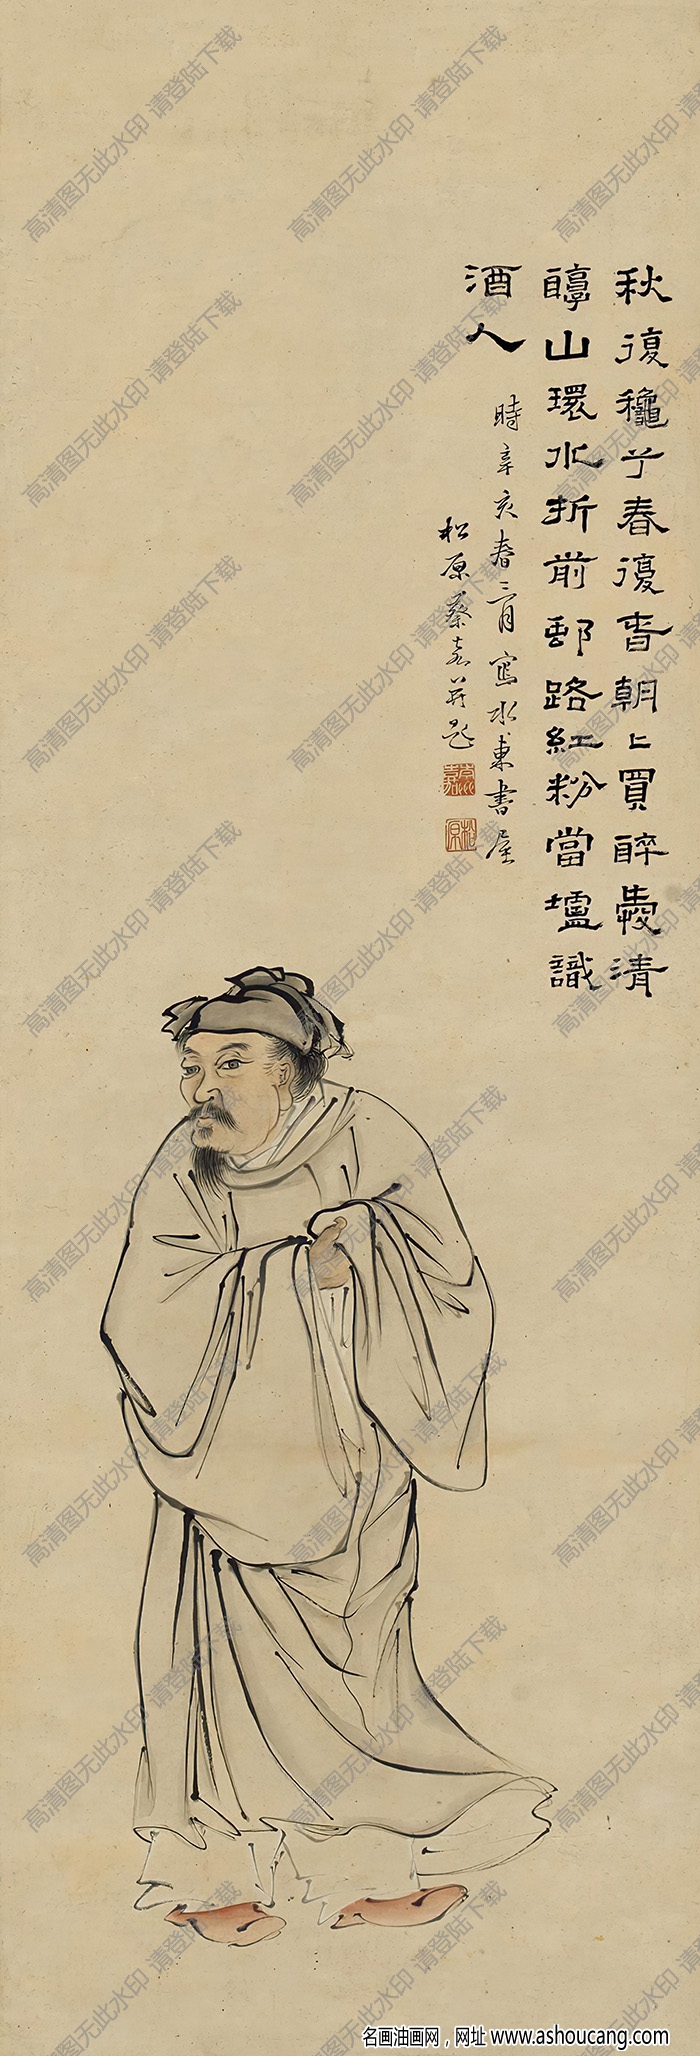 秋復龝兮春復春朝〻買醉愛清
醇山環水折前邨路紅粉當壚識
酒人
時辛亥春三月寫水東書屋
松原蔡嘉並題
蔡嘉
松原
高清图无此水印 请登陆下载
名画油画网，网址 www.ashoucang.com